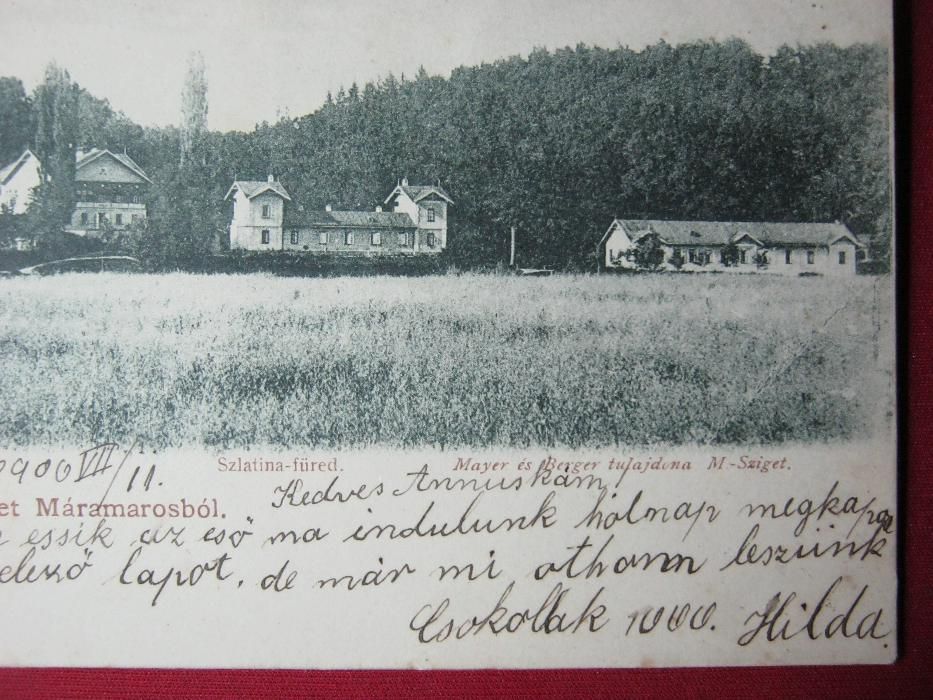 Szlatina-füred. Mayer és Berger tulajdona M.-Sziget.
1900 VII/11.
et Máramarosból. Kedves Annuskám!
essik az eső ma indulunk holnap megkapod
elező lapot. de már mi othonn leszünk
Csokollak 1000. Hilda